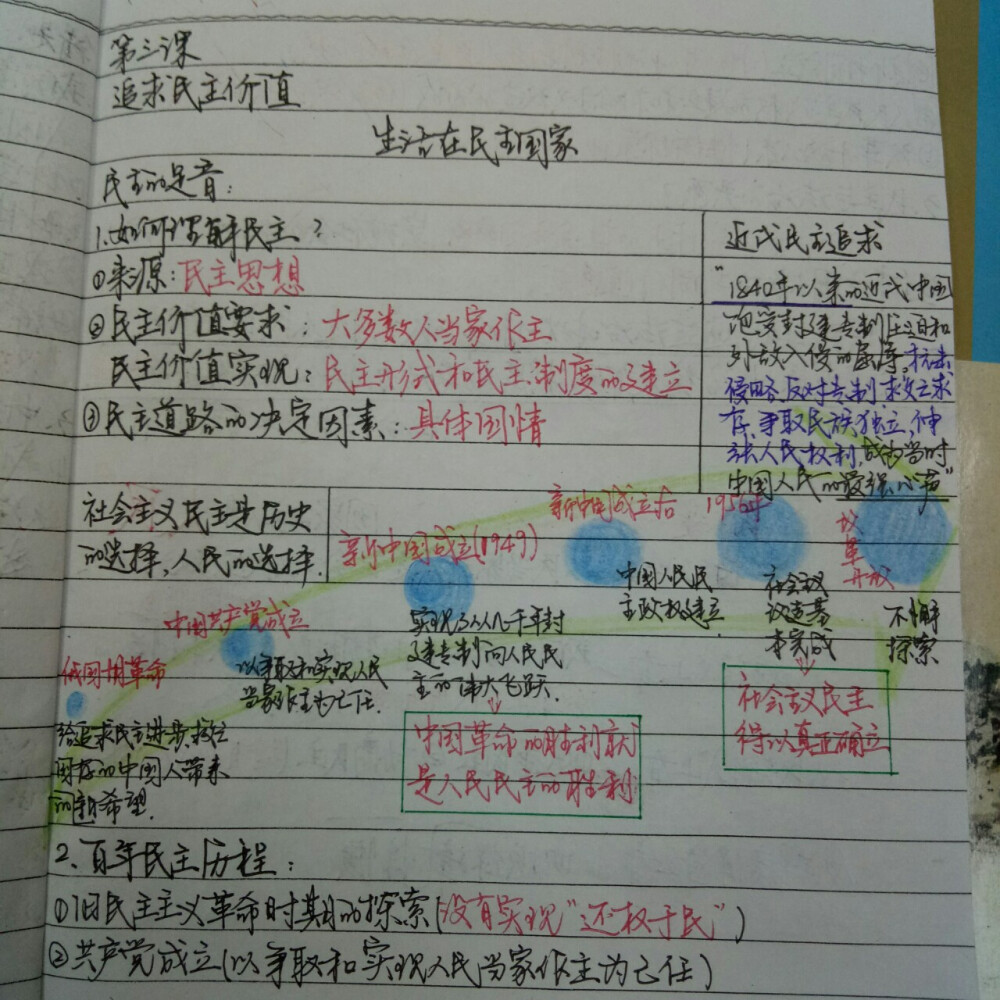 第三课
追求民主价值
生活在民主国家
民主的足音:
1.如何理解民主?
①来源:民主思想
②民主价值要求:大多数人当家作主
民主价值实现:民主形式和民主制度的建立
③民主道路的决定因素:具体国情
近代民主追求
"1840年以来的近代中国
饱受封建专制压迫和
外敌入侵的屈辱,抗击
侵略,反对专制,救亡求
存,争取民族独立,伸
张人民权利,成为当时
中国人民的最强心声"
社会主义民主是历史
的选择,人民的选择.
俄国十月革命
给追求民主进步,救亡
图存的中国人带来
的新希望.
中国共产党成立
以争取和实现人民
当家作主为己任.
新中国成立(1949)
实现了从几千年封
建专制向人民民
主的伟大飞跃.
中国革命的胜利就
是人民民主的胜利
新中国成立后
中国人民民
主政权建立
1956年
社会主义
改造基
本完成
社会主义民主
得以真正确立
改革
开放
不懈
探索
2.百年民主历程:
①旧民主主义革命时期的探索(没有实现"还权于民")
②共产党成立(以争取和实现人民当家作主为己任)